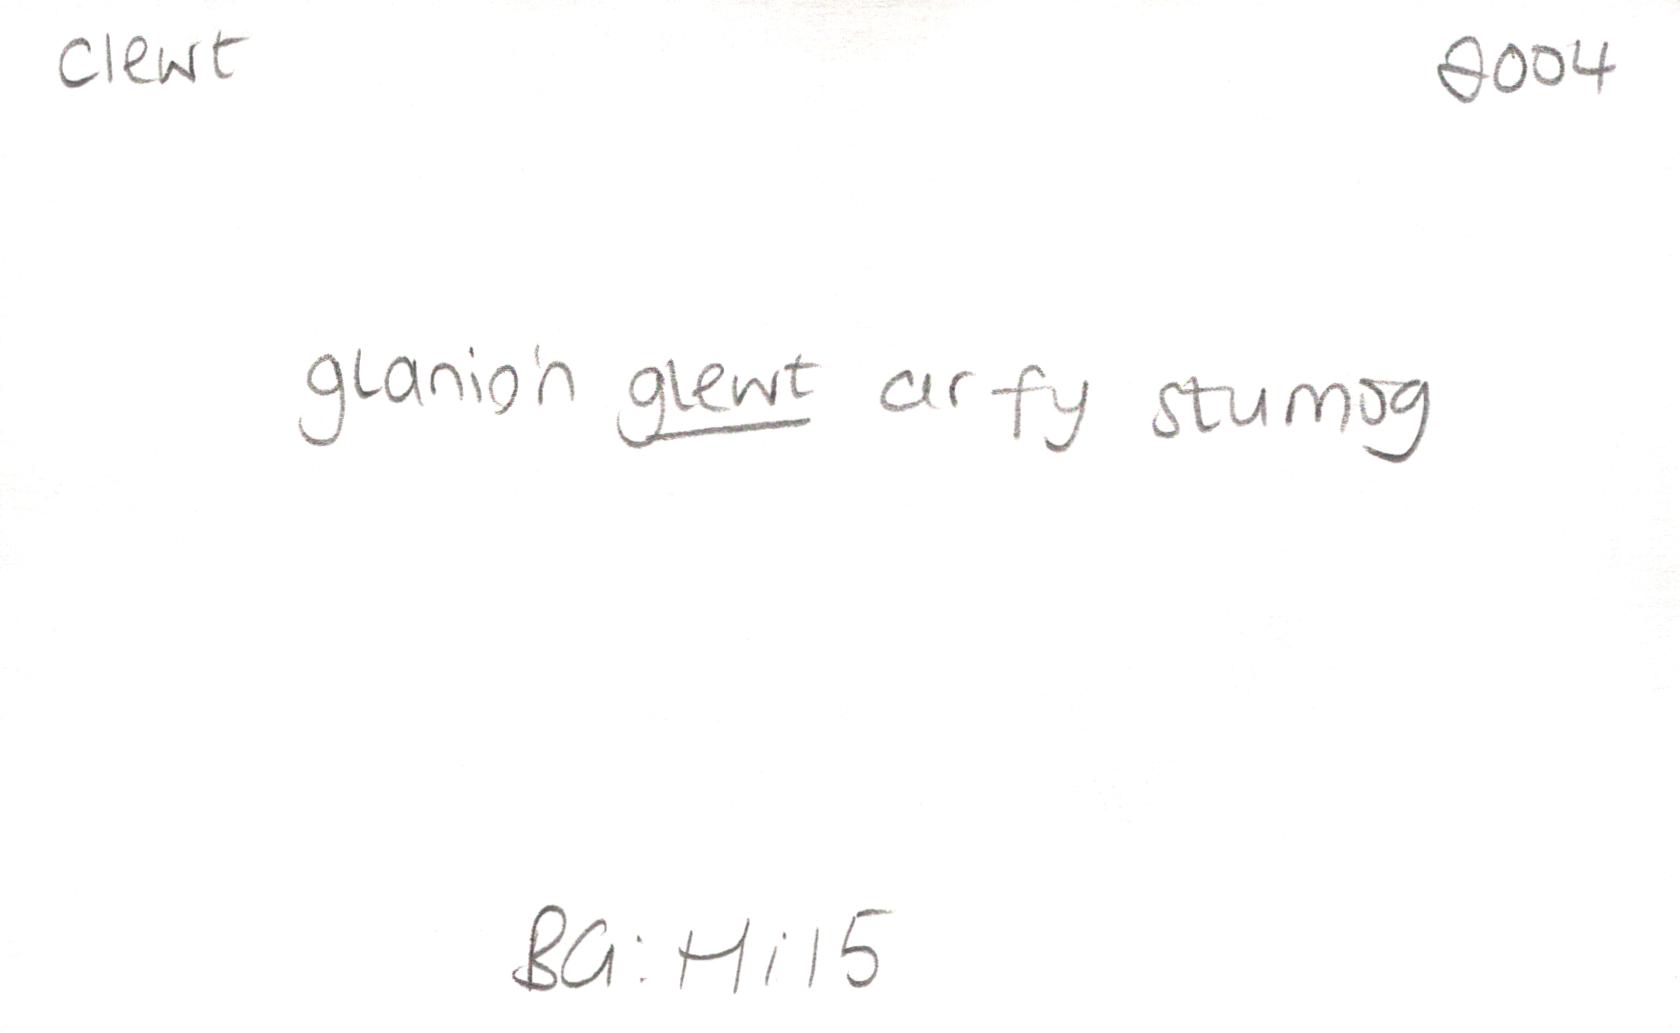 clewt 2004
glanio'n glewt ar fy stumog
BG: Hi 15